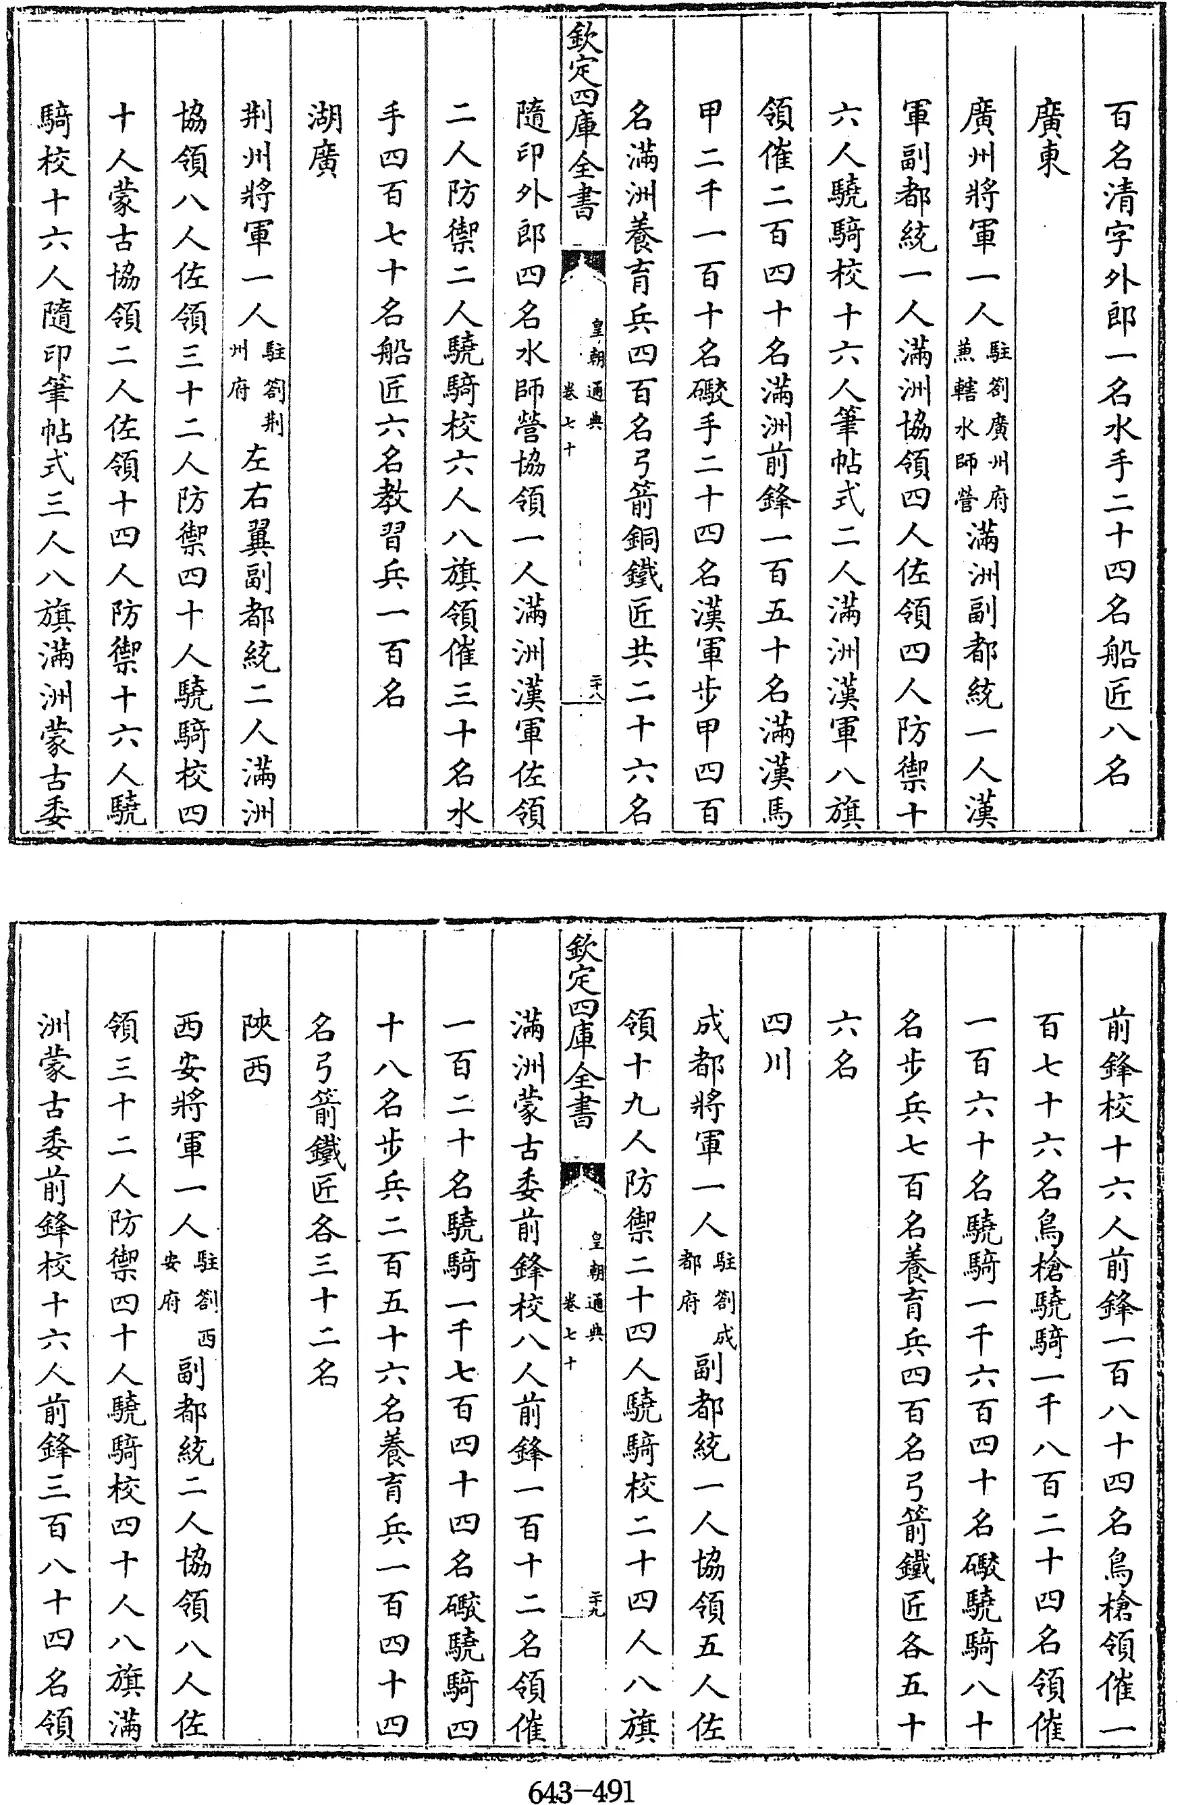 百名清字外郎一名水手二十四名船匠八名
廣東
廣州將軍一人駐劄廣州府兼轄水師營滿洲副都統一人漢
軍副都統一人滿洲協領四人佐領四人防禦十
六人驍騎校十六人筆帖式二人滿洲漢軍八旗
領催二百四十名滿洲前鋒一百五十名滿漢馬
甲二千一百十名礮手二十四名漢軍步甲四百
名滿洲養育兵四百名弓箭銅鐵匠共二十六名
欽定四庫全書
皇朝通典
卷七十
二十八
隨印外郎四名水師營協領一人滿洲漢軍佐領
二人防禦二人驍騎校六人八旗領催三十名水
手四百七十名船匠六名教習兵一百名
湖廣
荆州將軍一人駐劄荆州府左右翼副都統二人滿洲
協領八人佐領三十二人防禦四十人驍騎校四
十人蒙古協領二人佐領十四人防禦十六人驍
騎校十六人隨印筆帖式三人八旗滿洲蒙古委
前鋒校十六人前鋒一百八十四名鳥槍領催一
百七十六名鳥槍驍騎一千八百二十四名領催
一百六十名驍騎一千六百四十名礮驍騎八十
名步兵七百名養育兵四百名弓箭鐵匠各五十
六名
四川
成都將軍一人駐劄成都府副都統一人協領五人佐
領十九人防禦二十四人驍騎校二十四人八旗
欽定四庫全書
皇朝通典
卷七十
二十九
滿洲蒙古委前鋒校八人前鋒一百十二名領催
一百二十名驍騎一千七百四十四名礮驍騎四
十八名步兵二百五十六名養育兵一百四十四
名弓箭鐵匠各三十二名
陜西
西安將軍一人駐劄西安府副都統二人協領八人佐
領三十二人防禦四十人驍騎校四十人八旗滿
洲蒙古委前鋒校十六人前鋒三百八十四名領
643-491